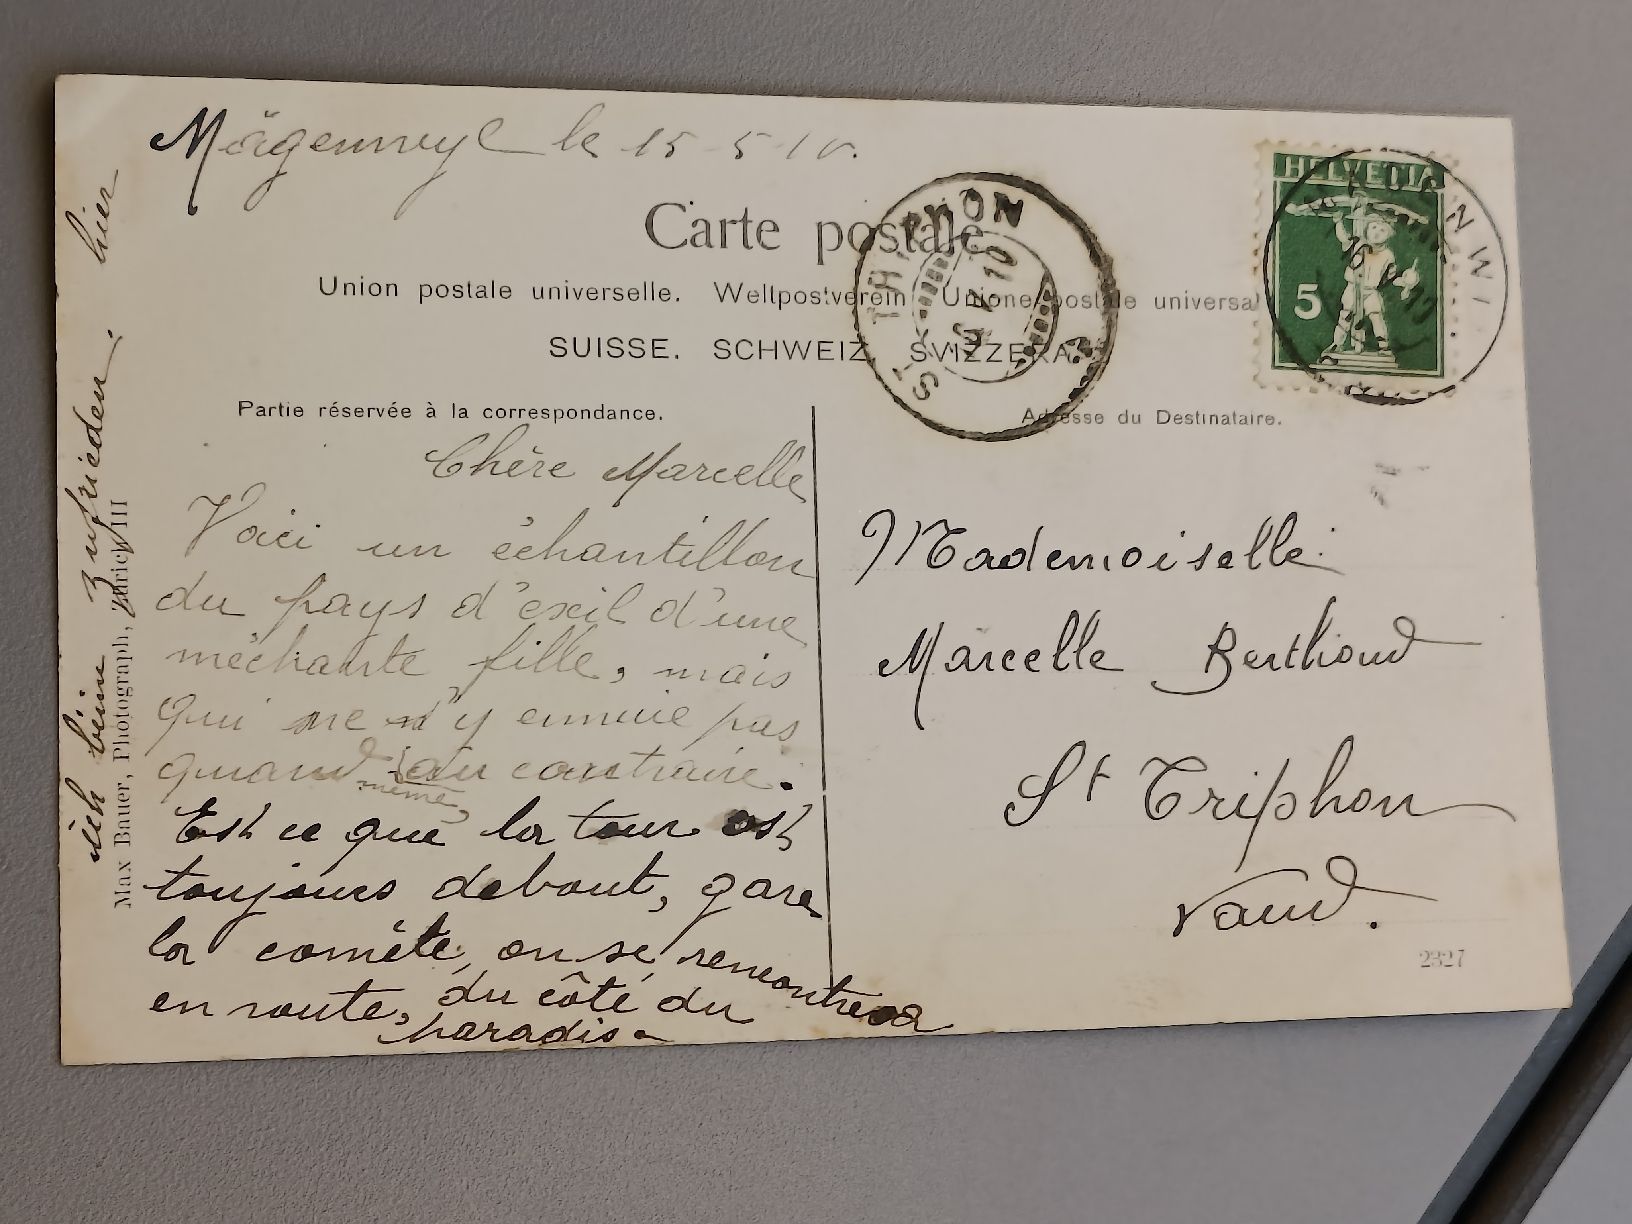 Mägenwyl le 15-5-10.
HELVETIA
5
ST TRIPHON
Carte postale
Union postale universelle. Weltpostverein Unione postale universale
SUISSE. SCHWEIZ. SVIZZERA.
Partie réservée à la correspondance.
Adresse du Destinataire.
Chère Marcelle
Voici un échantillon
du pays d'exil d'une
méchante fille, mais
qui ne n'y ennuie pas
quand même, au contraire.
Est ce que la tour est
toujours debout, gare
la comète, on se rencontrera
en route, du côté du
paradis.
ich bin zufrieden hier
Max Bauer, Photograph, Zürich III
Mademoiselle
Marcelle Berthoud
St Triphon
Vaud.
2327